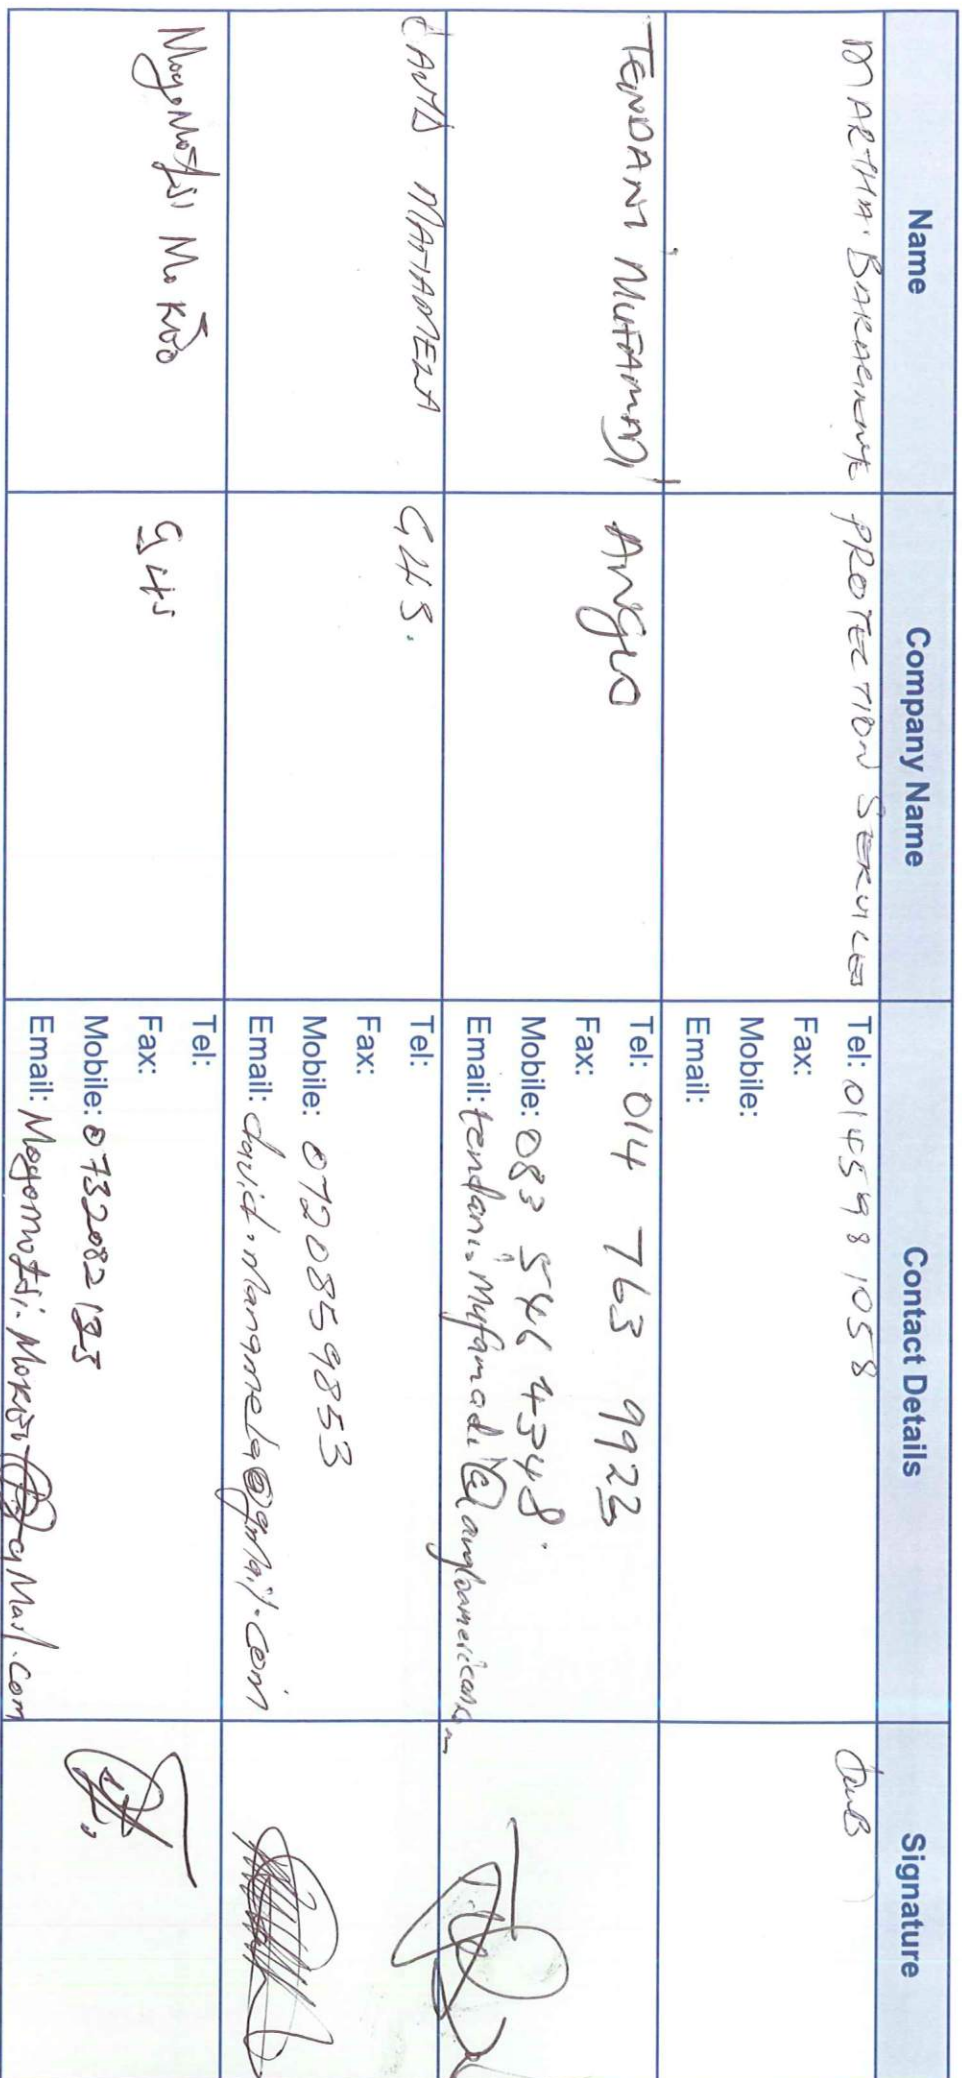 Name Company Name Contact Details Signature
MARTHA PROTECTION SERVICES Tel: 014598 1058
Fax:
Mobile:
Email:
TENDANI MUFAMADI ANGLO Tel: 014 763 9923
Fax:
Mobile: 083 546 4348
Email: tendani.mufamadi@angloamerican.com
DAVID G4S. Tel:
Fax:
Mobile: 0720859853
Email: david.mangmela@gmail.com
Mogomotsi G4S Tel:
Fax:
Mobile:
Email: